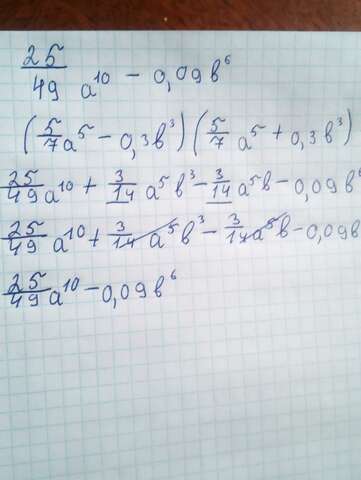 25/49 a¹⁰ − 0,09в⁶
(5/7 a⁵ − 0,3в³)(5/7 a⁵ + 0,3в³)
25/49 a¹⁰ + 3/14 a⁵в³ − 3/14 a⁵в − 0,09в⁶
25/49 a¹⁰ + 3/14 a⁵в³ − 3/14 a⁵в − 0,09в
25/49 a¹⁰ − 0,09в⁶